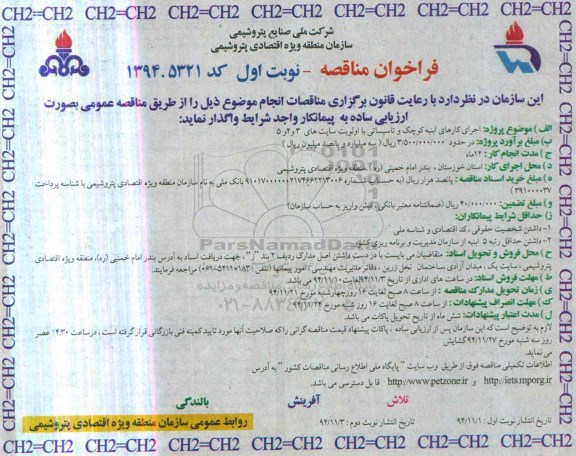 CH2=CH2=CH2=CH2=CH2=CH2=CH2=CH2=CH2=CH2
شرکت ملی صنایع پتروشیمی
سازمان منطقه ویژه اقتصادی پتروشیمی
فراخوان مناقصه - نوبت اول کد ۱۳۹۴.۵۳۲۱
این سازمان در نظر دارد با رعایت قانون برگزاری مناقصات انجام موضوع ذیل را از طریق مناقصه عمومی بصورت
ارزیابی ساده به پیمانکار واجد شرایط واگذار نماید:
الف) موضوع پروژه: اجرای کارهای ابنیه کوچک و تاسیساتی با اولویت سایت های ۳ و۴و ۵
ب) مبلغ برآورد پروژه: در حدود ۳/۵۰۰/۰۰۰/۰۰۰ ریال ( سه میلیارد و پانصد میلیون ریال )
ج) مدت انجام کار: ۱۲ماه
د) محل اجرای کار: استان خوزستان ، بندر امام خمینی (ره) ،منطقه ویژه اقتصادی پتروشیمی
ه) مبلغ خرید اسناد مناقصه: پانصد هزار ریال (به حساب شماره بانک ملی به نام سازمان منطقه ویژه اقتصادی پتروشیمی با شناسه پرداخت
و) مبلغ تضمین: ریال (ضمانتنامه معتبر بانکی، فیش واریز به حساب سازمان)
ز) حداقل شرایط پیمانکاران:
۱- داشتن شخصیت حقوقی، کد اقتصادی و شناسه ملی
۲- داشتن حداقل رتبه ۵ ابنیه از سازمان مدیریت و برنامه ریزی کشور
ح) محل فروش و تحویل اسناد: متقاضیان می بایست با در دست داشتن اصل مدارک ردیف۲ بند "ز"، جهت دریافت اسناد به آدرس بندر امام خمینی (ره)، منطقه ویژه اقتصادی
پتروشیمی ، سایت یک ، میدان آزادی ،ساختمان نخل زرین ، دفاتر مدیریت مهندسی / امور پیمانها (تلفن: ) مراجعه فرمایند.
ط) مهلت فروش اسناد: در ساعت های اداری از تاریخ ۹۴/۱۱/۳ لغایت ۹۴/۱۱/۱۰ می باشد.
ی) زمان تحویل مدارک مناقصه : از ساعت ۸ صبح لغایت ۱۶ روز چهارشنبه مورخ ۹۴/۱۱/۲۱
ک) مهلت انصراف پیشنهادات : از ساعت ۸ صبح لغایت ۱۶ روز
ل) مدت اعتبار پیشنهادات: شش ماه از تاریخ تحویل پاکات می باشد.
لازم به توضیح است که این سازمان پس از ارزیابی ساده ، پاکات پیشنهاد قیمت مناقصه گرانی را که صلاحیت آنها مورد تایید کمیته فنی بازرگانی قرار گرفته است ، درساعت ۱۴:۳۰ عصر
روز سه شنبه مورخ ۹۴/۱۱/۲۷ گشایش
می نماید.
اطلاعات تکمیلی مناقصه فوق از طریق وب سایت " پایگاه ملی اطلاع رسانی مناقصات کشور " به آدرس
http://iets.mporg.ir و http://www.petzone.ir قابل دسترسی می باشد.
تلاش آفرینش بالندگی
تاریخ انتشار نوبت اول : ۹۴/۱۱/۱ تاریخ انتشار نوبت دوم : ۹۴/۱۱/۳
روابط عمومی سازمان منطقه ویژه اقتصادی پتروشیمی
ParsNamadData
CH2=CH2=CH2=CH2=CH2=CH2=CH2=CH2=CH2=CH2